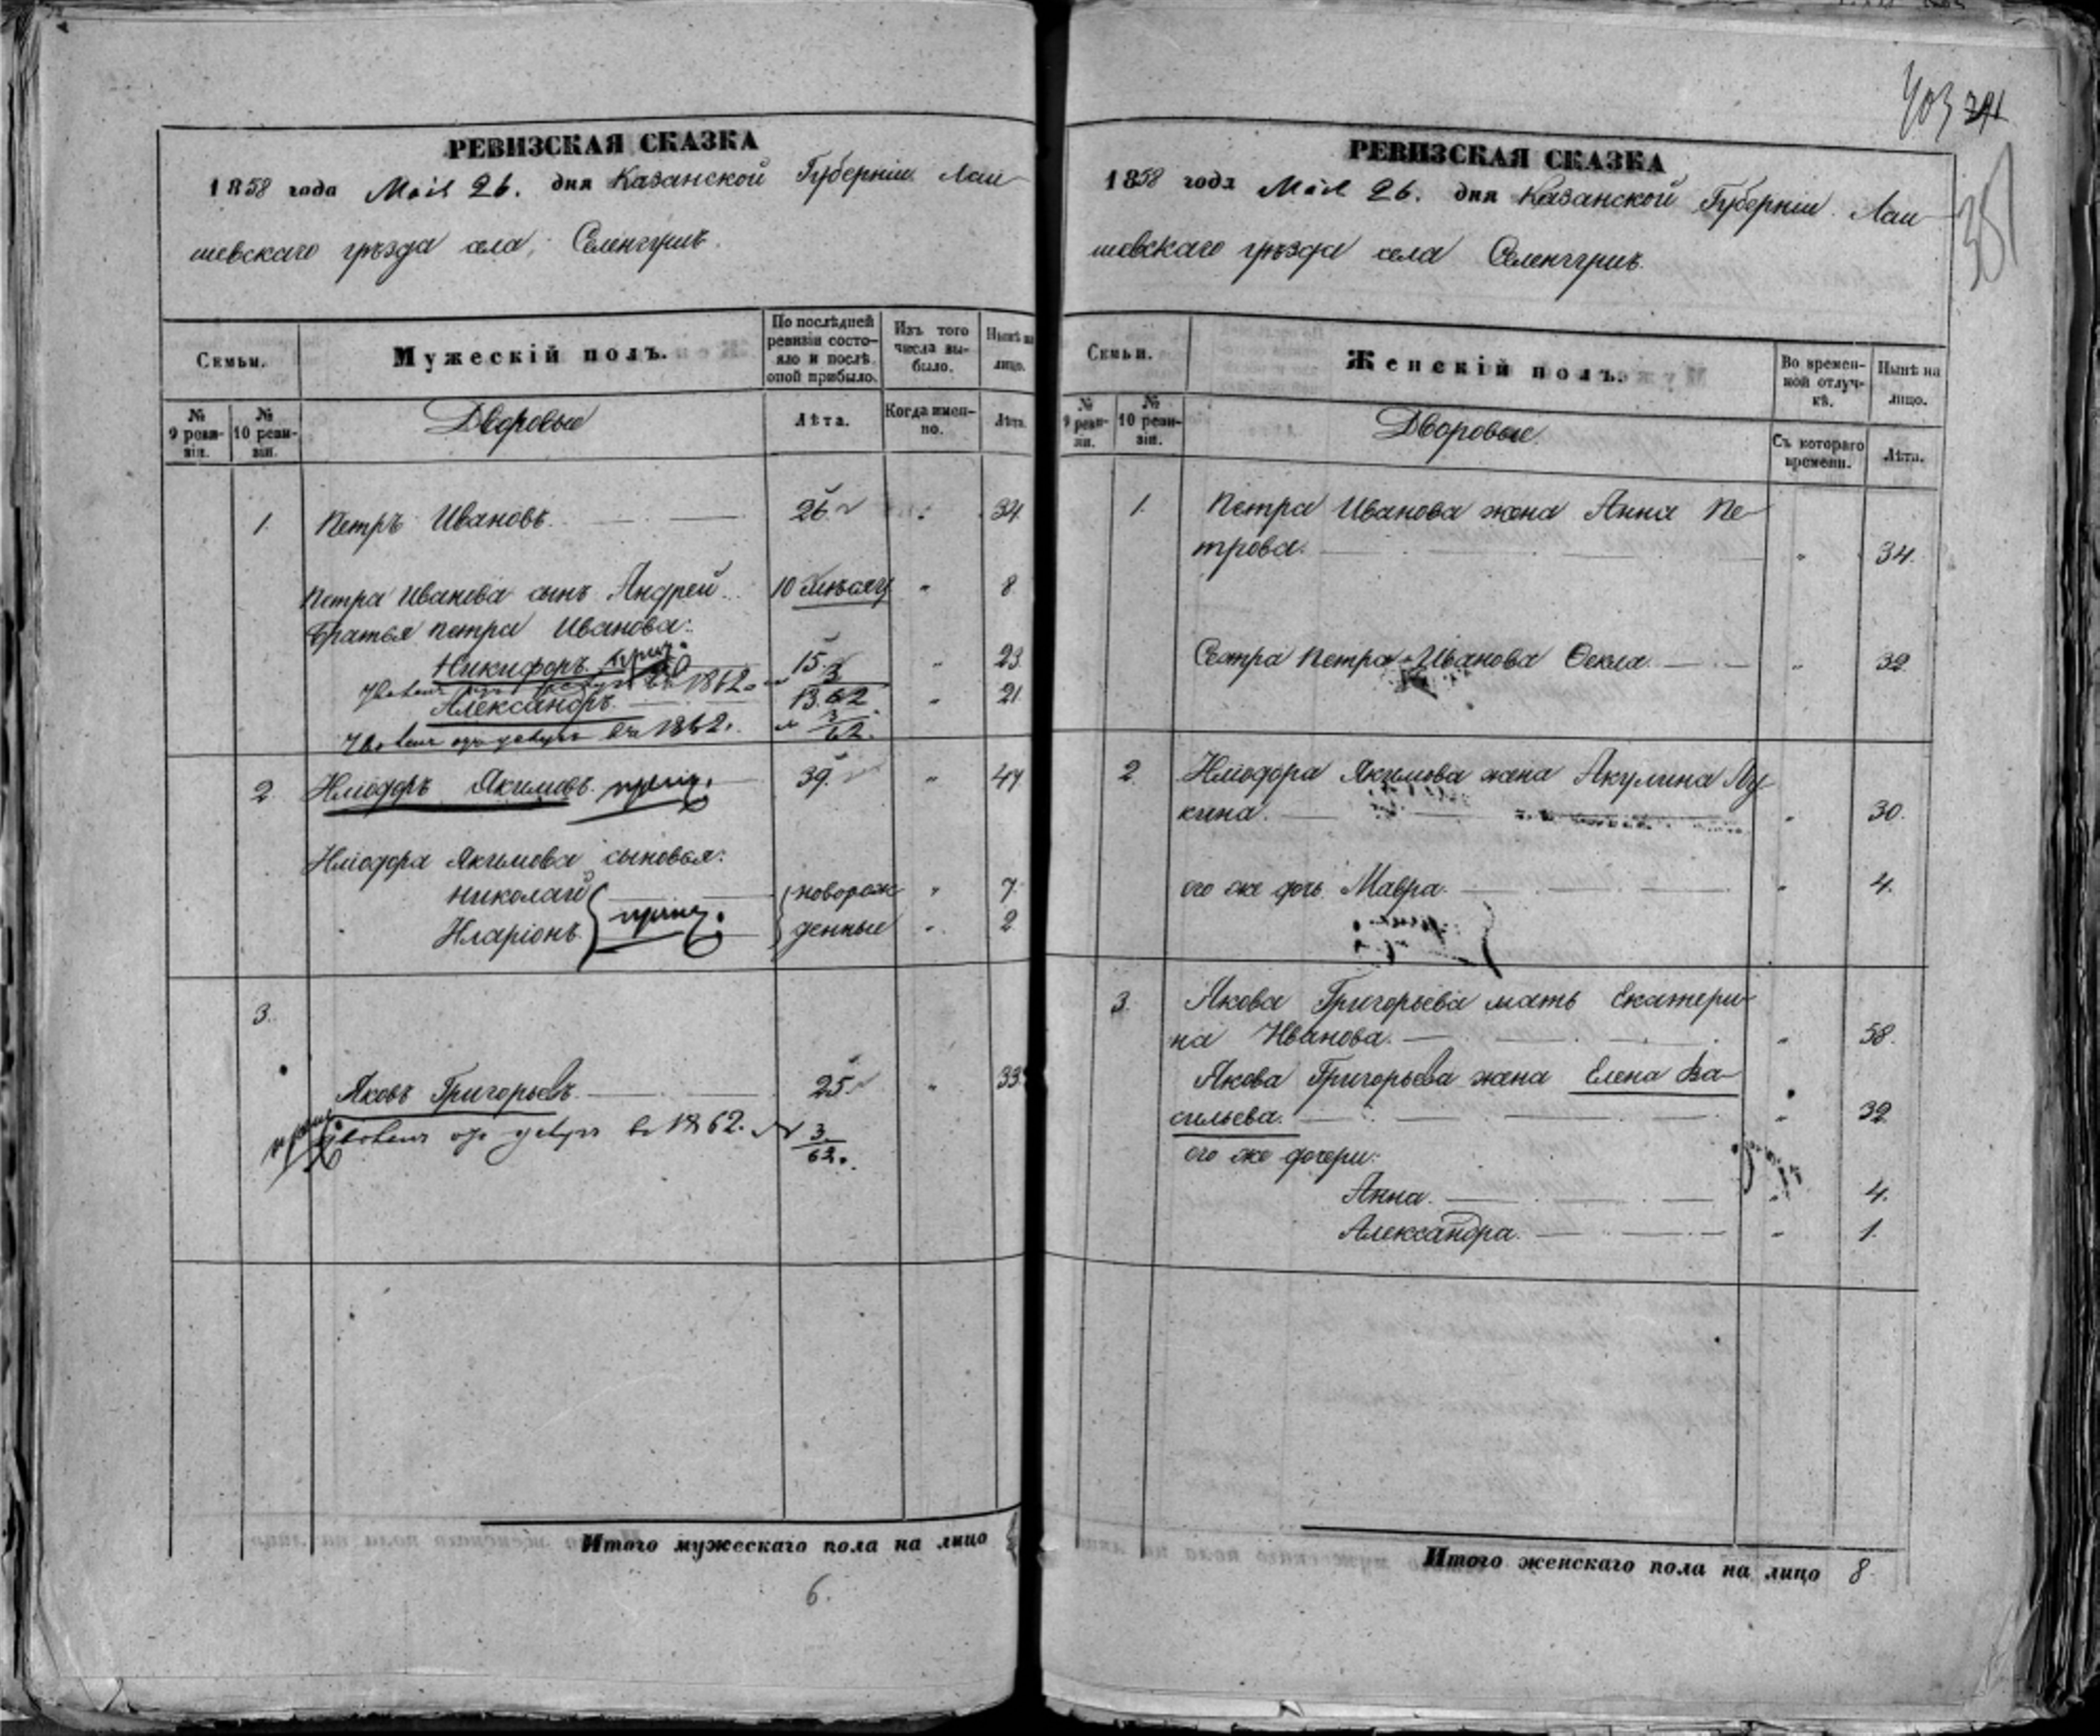 403
351
РЕВИЗСКАЯ СКАЗКА
1858 года Мая 26. дня Казанской Губерніи Лаи
шевскаго уѣзда села, Селенгушъ.
Семьи.
Мужескій полъ.
По послѣдней ревизіи состояло и послѣ оной прибыло.
Изъ того числа выбыло.
Нынѣ на лицо.
№ 9 ревизіи.
№ 10 ревизіи.
Дворовые
Лѣта.
Когда именно.
Лѣта.
1. Петръ Ивановъ. 26. " 34
Петра Иванова сынъ Андрей. 10 мѣсяц " 8
Братья Петра Иванова:
Никифоръ. 15. " 23.
1862.
Александръ. 13. " 21
въ 1862. 3/62.
2. Иліодоръ Якимовъ. 39. " 47
Иліодора Якимова сыновья:
Николай новорож " 7.
Иларіонъ. денные " 2
3.
Яковъ Григорьевъ. 25. " 33.
въ 1862. 3/62.
Итого мужескаго пола на лицо
6.
РЕВИЗСКАЯ СКАЗКА
1858 года Мая 26. дня Казанской Губерніи. Лаи
шевскаго уѣзда села Селенгушъ.
Семьи.
Женскій полъ.
Во временной отлучкѣ.
Нынѣ на лицо.
№ 9 ревизіи.
№ 10 ревизіи.
Дворовые.
Съ котораго времени.
Лѣта.
1. Петра Иванова жена Анна Пе
трова. " 34.
Сестра Петра Иванова Ѳекла. " 32.
2. Иліодора Якимова жена Акулина Лу
кина. " 30.
его же дочь Мавра. " 4.
3. Якова Григорьева мать Екатери
на Иванова. " 58.
Якова Григорьева жена Елена Ва
сильева. " 32.
его же дочери:
Анна. " 4.
Александра. " 1.
Итого женскаго пола на лицо 8